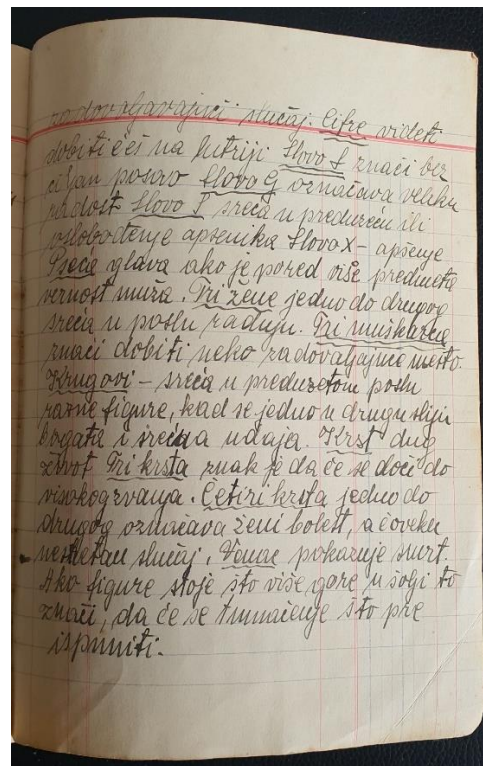 zadovoljavajući slučaj. Cifre videti
dobiti ćeš na lutriji Slovo S znači bez
ciljan posao Slovo G označava veliku
radost Slovo P sreća u preduzeću ili
oslobođenje apsenika Slovo X – apšenje
Pseća glava ako je pored više predmeta
vernost muža. Tri žene jedno do drugog
sreća u poslu raduju. Tri muškarca
znači dobiti neko zadovaljajuće mesto.
Krugovi – sreća u preduzetom poslu
razne figure, kad se jedno u drugu sliju
bogata i srećna udaja. Krst dug
život Tri krsta znak je da će se doći do
visokog zvanja. Četiri krsta jedno do
drugog označava ženi bolest, a čoveku
nesretan slučaj. pokazuje smrt.
Ako figure stoje što više gore u šolji to
znači, da će se tumačenje što pre
ispuniti.